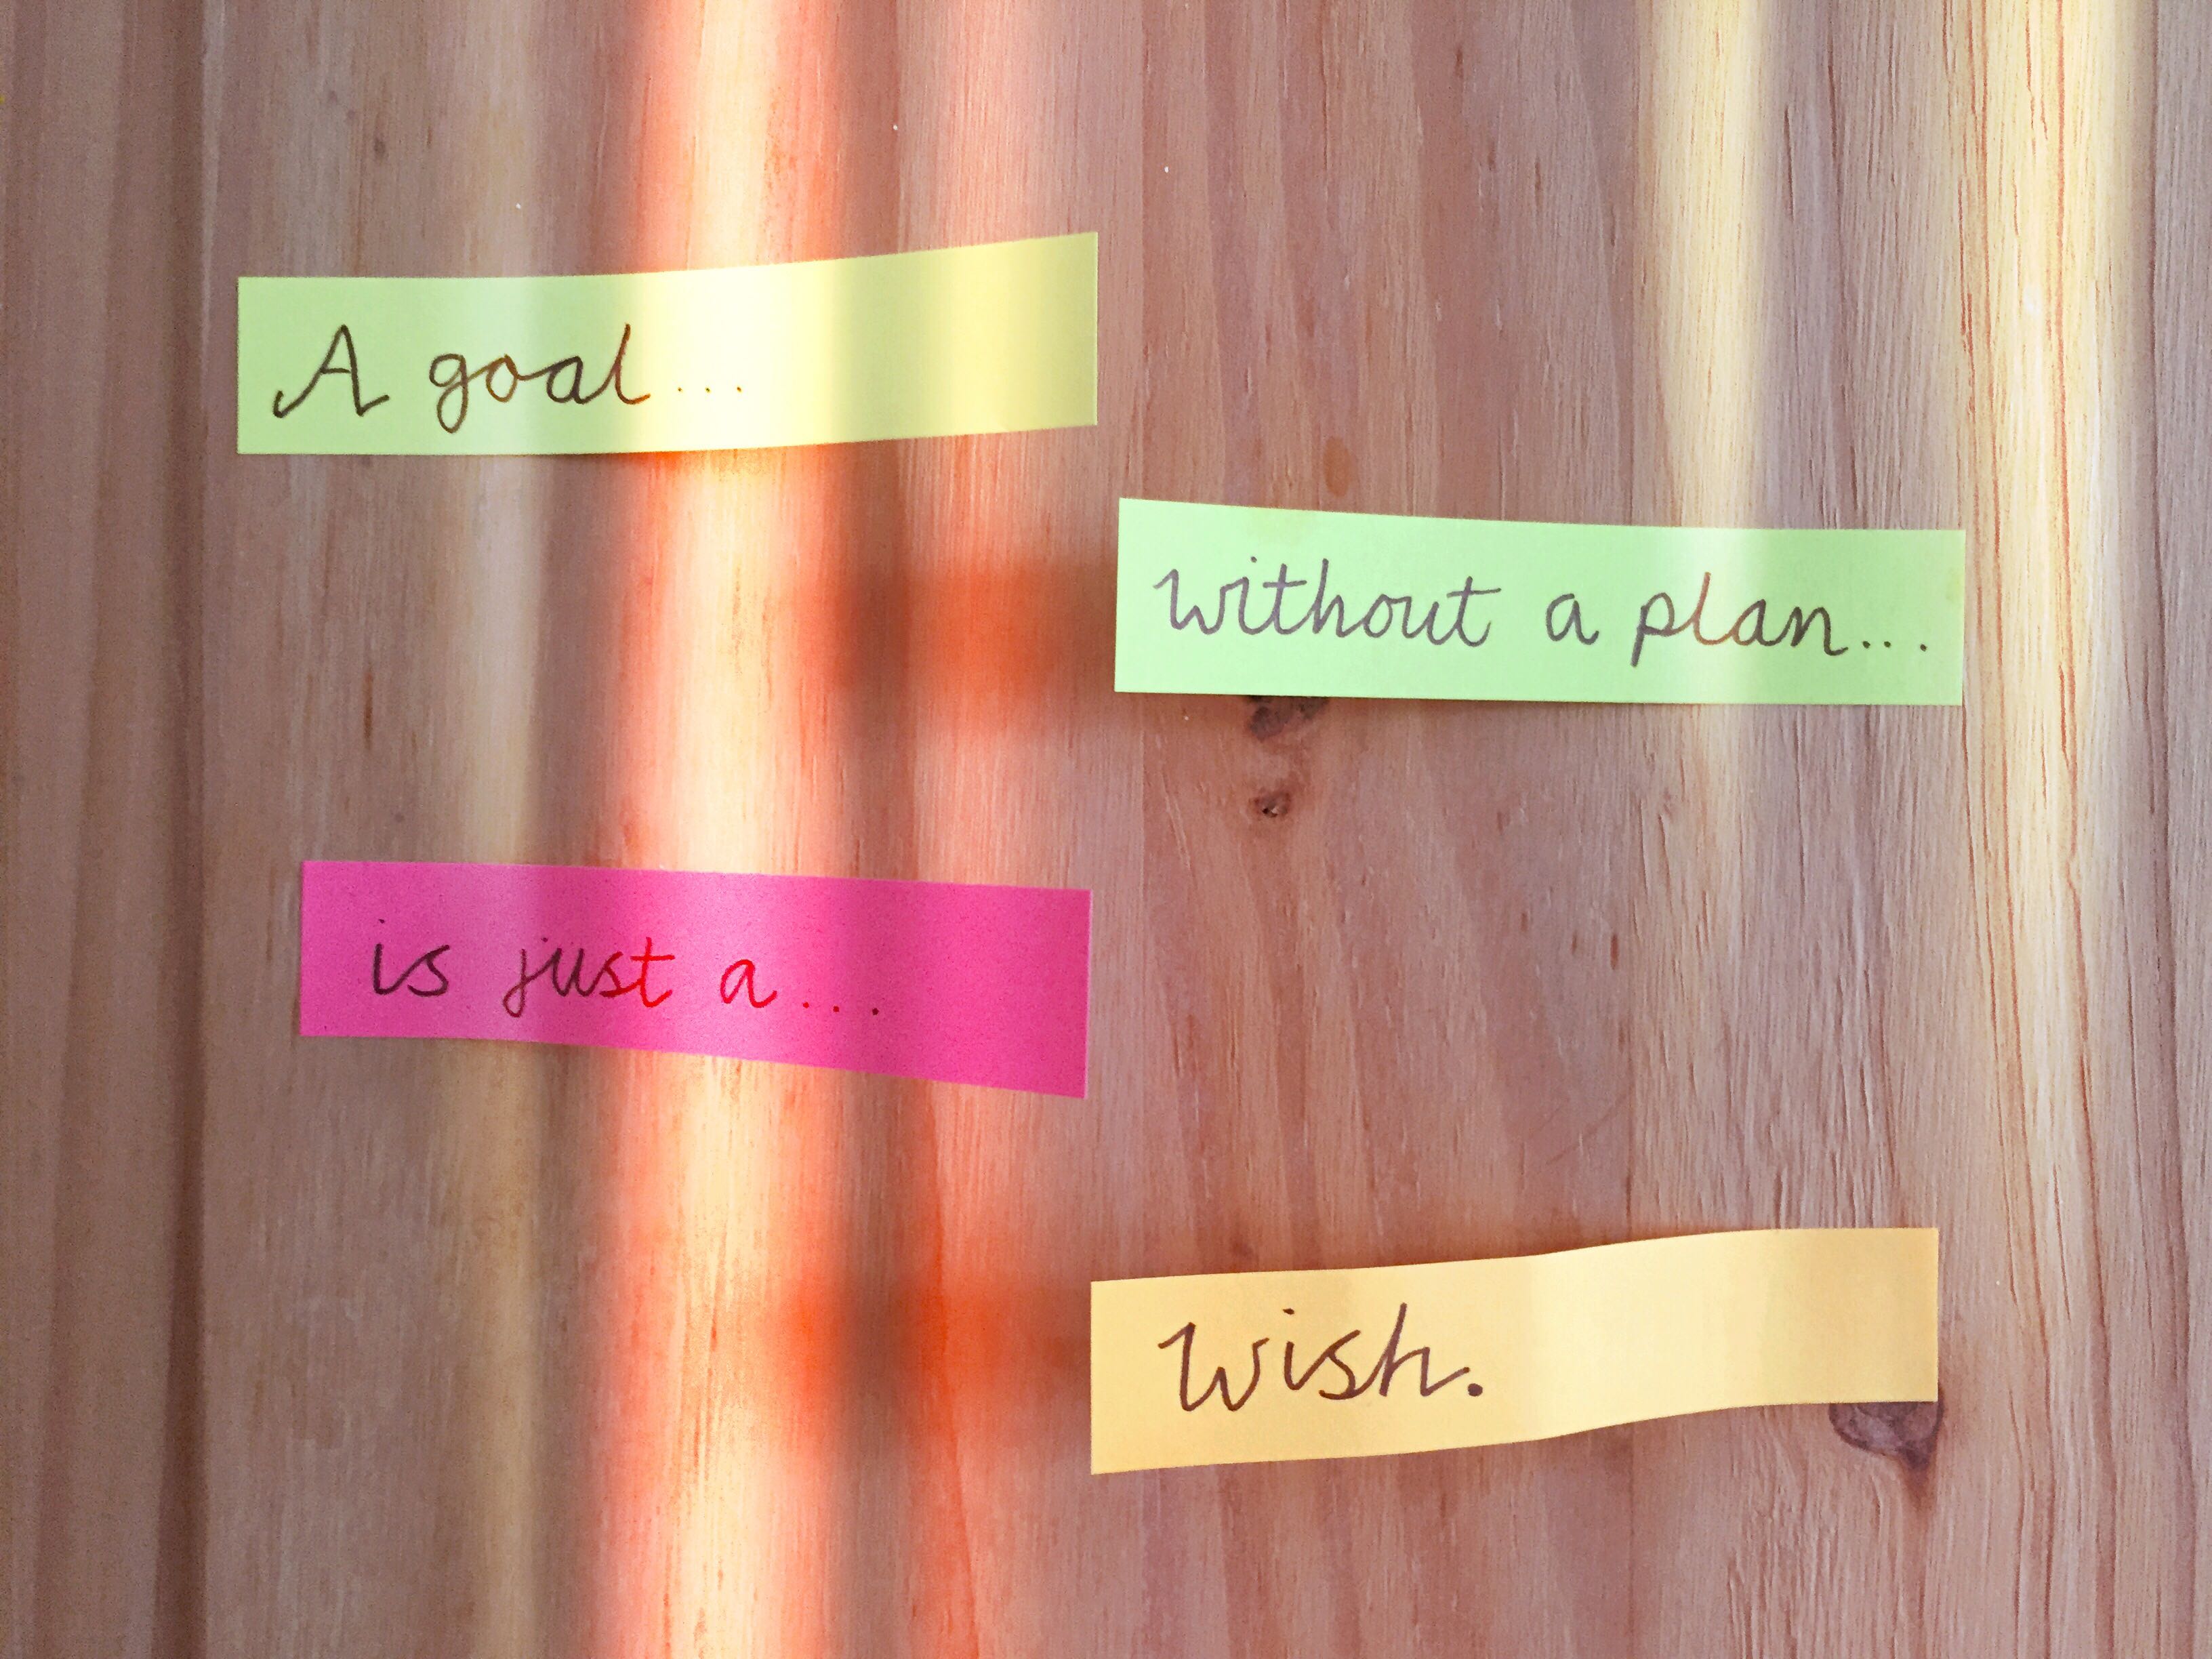 A goal...
without a plan...
is just a...
wish.